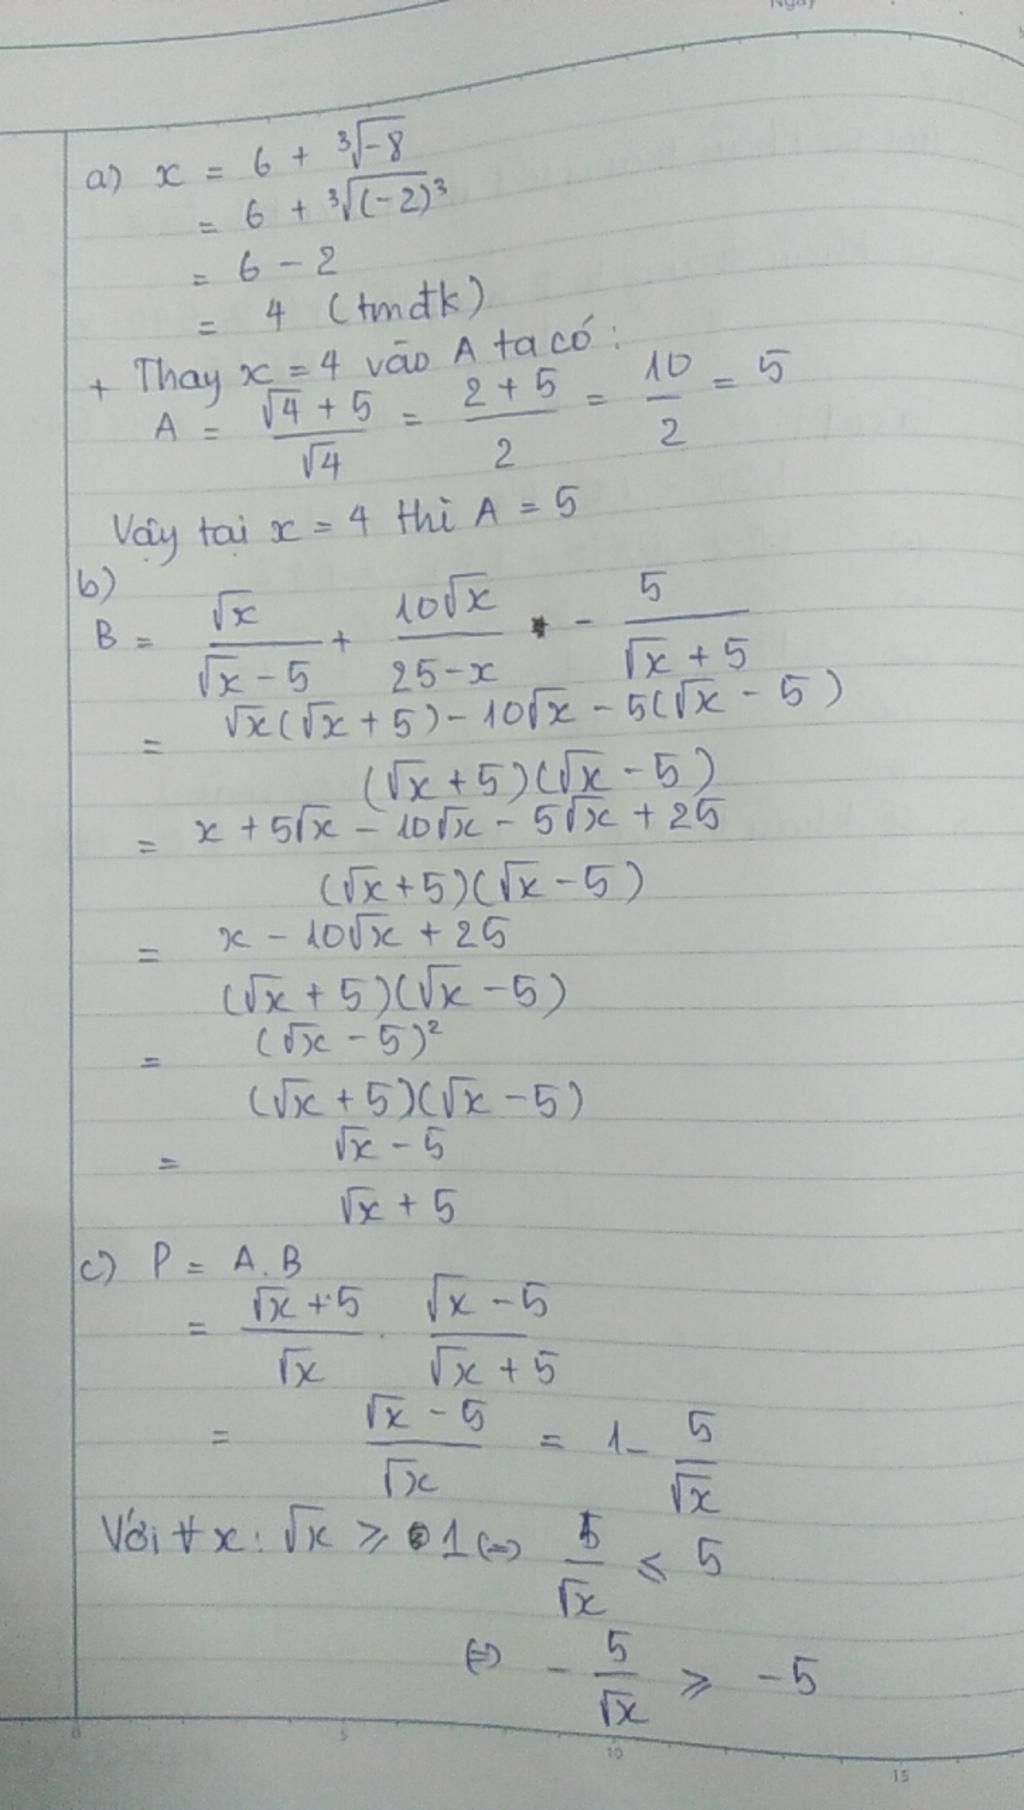 Ngày
a) x = 6 + ∛-8
= 6 + ∛(-2)³
= 6 - 2
= 4 (tmđk)
+ Thay x = 4 vào A ta có:
A = (√4 + 5)/√4 = (2 + 5)/2 = 10/2 = 5
Vậy tại x = 4 thì A = 5
b)
B = √x/(√x - 5) + 10√x/(25 - x) - 5/(√x + 5)
= (√x(√x + 5) - 10√x - 5(√x - 5))/((√x + 5)(√x - 5))
= (x + 5√x - 10√x - 5√x + 25)/((√x + 5)(√x - 5))
= (x - 10√x + 25)/((√x + 5)(√x - 5))
= (√x - 5)²/((√x + 5)(√x - 5))
= (√x - 5)/(√x + 5)
c) P = A.B
= (√x + 5)/√x . (√x - 5)/(√x + 5)
= (√x - 5)/√x = 1 - 5/√x
Với ∀x: √x ⩾ 1 ⇔ 5/√x ⩽ 5
⇔ -5/√x ⩾ -5
0 5 10 15